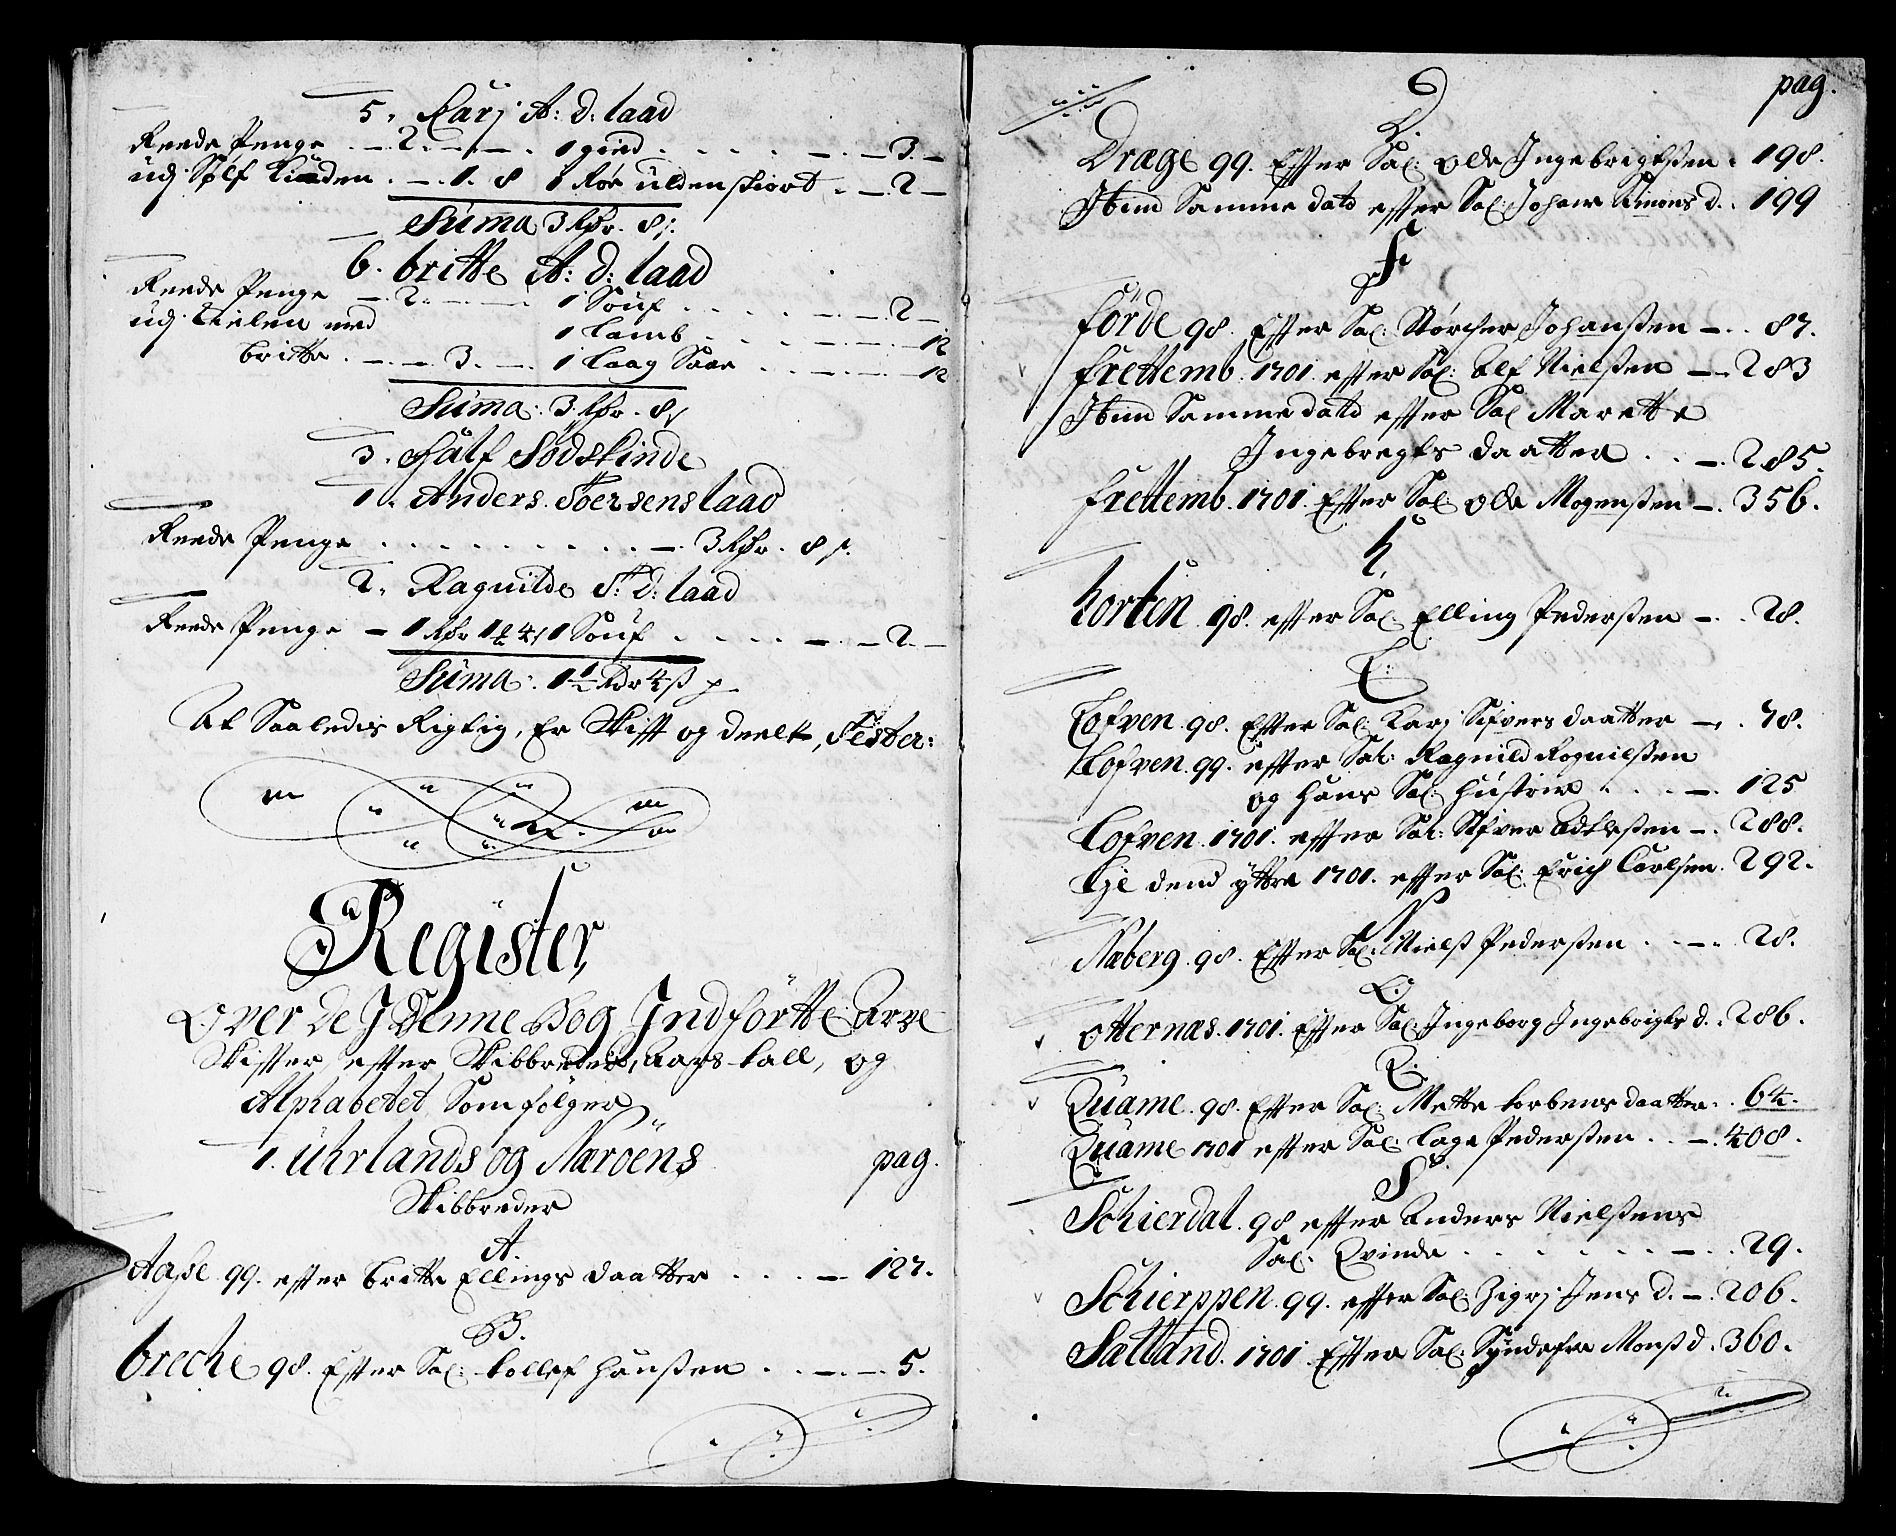 5. Karj A: D: laad
Reede Penge . — 2. — . — . 1 gied . . . . — . — 3. —
udj Sølf Kanden . — . 1. 8 1 Rør ulden skiort . — 2 —
Suma 3 Rdr. 8 s:
6. britte A: D: laad
Reede Penge — 2. — . — . 1 Souf . . . . — . — 2 —
udj Kielen med 1 Lamb . . . — . — . 12
britte . — . — 3. — . 1 laag Saar . . — . — . 12
Suma: 3 Rdr. 8 s
3. Half Sødskinde
1. Anders Størsens laad
Reede Penge . . . . . . . . . — . 3 Rdr. 8 s.
2. Ragnilde S: D: laad
Reede Penge — 1 Rdr 1 ℔ 4 s 1 Souf . . . . — . — 2. —
Suma: 1 ½ Rdr 4 s
At Saaledis Rigtig, Er Skift og deelt, Tester:
Register,
Over de J Denne Bog Jndförtte Arve
Skifter, efter Skibbreder, Aars tall, og
Alphabetet Som følger
1. Uhrlands og Næröens pag.
Skibbreder
A.
Aaße 99. efter britte Ellings daatter . . . — 127.
B.
breche 98. Efter Sal: tollef Hanßen . . . — . — . 5.
pag.
D.
Drægе 99. Efter Sal: ole Jngebrigtßen . 198.
Jtem Samme dato efter Sal: Johane Simons d. . 199
F
förde 98. Efter Sal: Størcker Johanßen — . . 87.
frettemb. 1701. efter Sal: Elf Nielßen — . — 283
Jtem Samme dato efter Sal Marette
Jngebregts daatter . . — . 285.
frettemb. 1701. Efter Sal ole Mogenßen — . 356.
h.
horten 98. efter Sal: Elling Pederßen — . . 28.
L:
Lofven 98. Efter Sal: Karj Sifvers daatter — . . 78.
Lofven 99. efter Sal: Ragnild Rognilßen
og hans Sal: Hustrue . . . — . 125
Lofven 1701. efter Sal: Sifver Adtleßen — . 288.
Lje dend yttre 1701. efter Sal: Erich Carlsen. 292.
N
Næberg 98. Efter Sal: Nielß Pederßen . . — . — . 28.
O:
otternæs. 1701. Efter Sal Jngeborg Jngebrigts d. . 286.
Q.
Quame 98. Efter Sal: Mette torbens daatter. . 64.
Quame 1701 efter Sal: Lage Pederßen . . — . 408.
S.
Schierdal 98 efter Anders Nielßens
Sal: Qvinde . . . . . . . — . . 29.
Schierppen 99. efter Sal: Zigrj Jens D. — . 206.
Sætland. 1701. Efter Sal: Syndefre Monß d. 360.